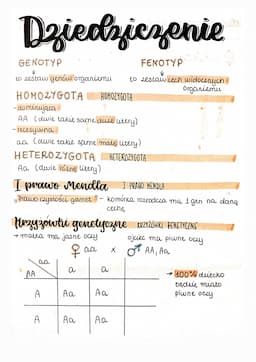 Dziedziczenie
GENOTYP FENOTYP
to zestaw genów organizmu to zestaw cech widocznych organizmu
HOMOZYGOTA HOMOZYGOTA
- dominująca
AA (dwie takie same duże litery)
- recesywna
aa (dwie takie same małe litery)
HETEROZYGOTA HETEROZYGOTA
Aa (dwie różne litery)
I prawo Mendla I PRAWO MENDLA
prawo czystości gamet - komórka rozrodcza ma 1 gen na daną
cechę
Krzyżówki genetyczne KRZYŻÓWKI GENETYCZNE
→ matka ma jasne oczy ojciec ma piwne oczy
♀ aa x ♂ AA, Aa
aa
AA a a
A Aa Aa
A Aa Aa
→ 100% dziecko
będzie miało
piwne oczy